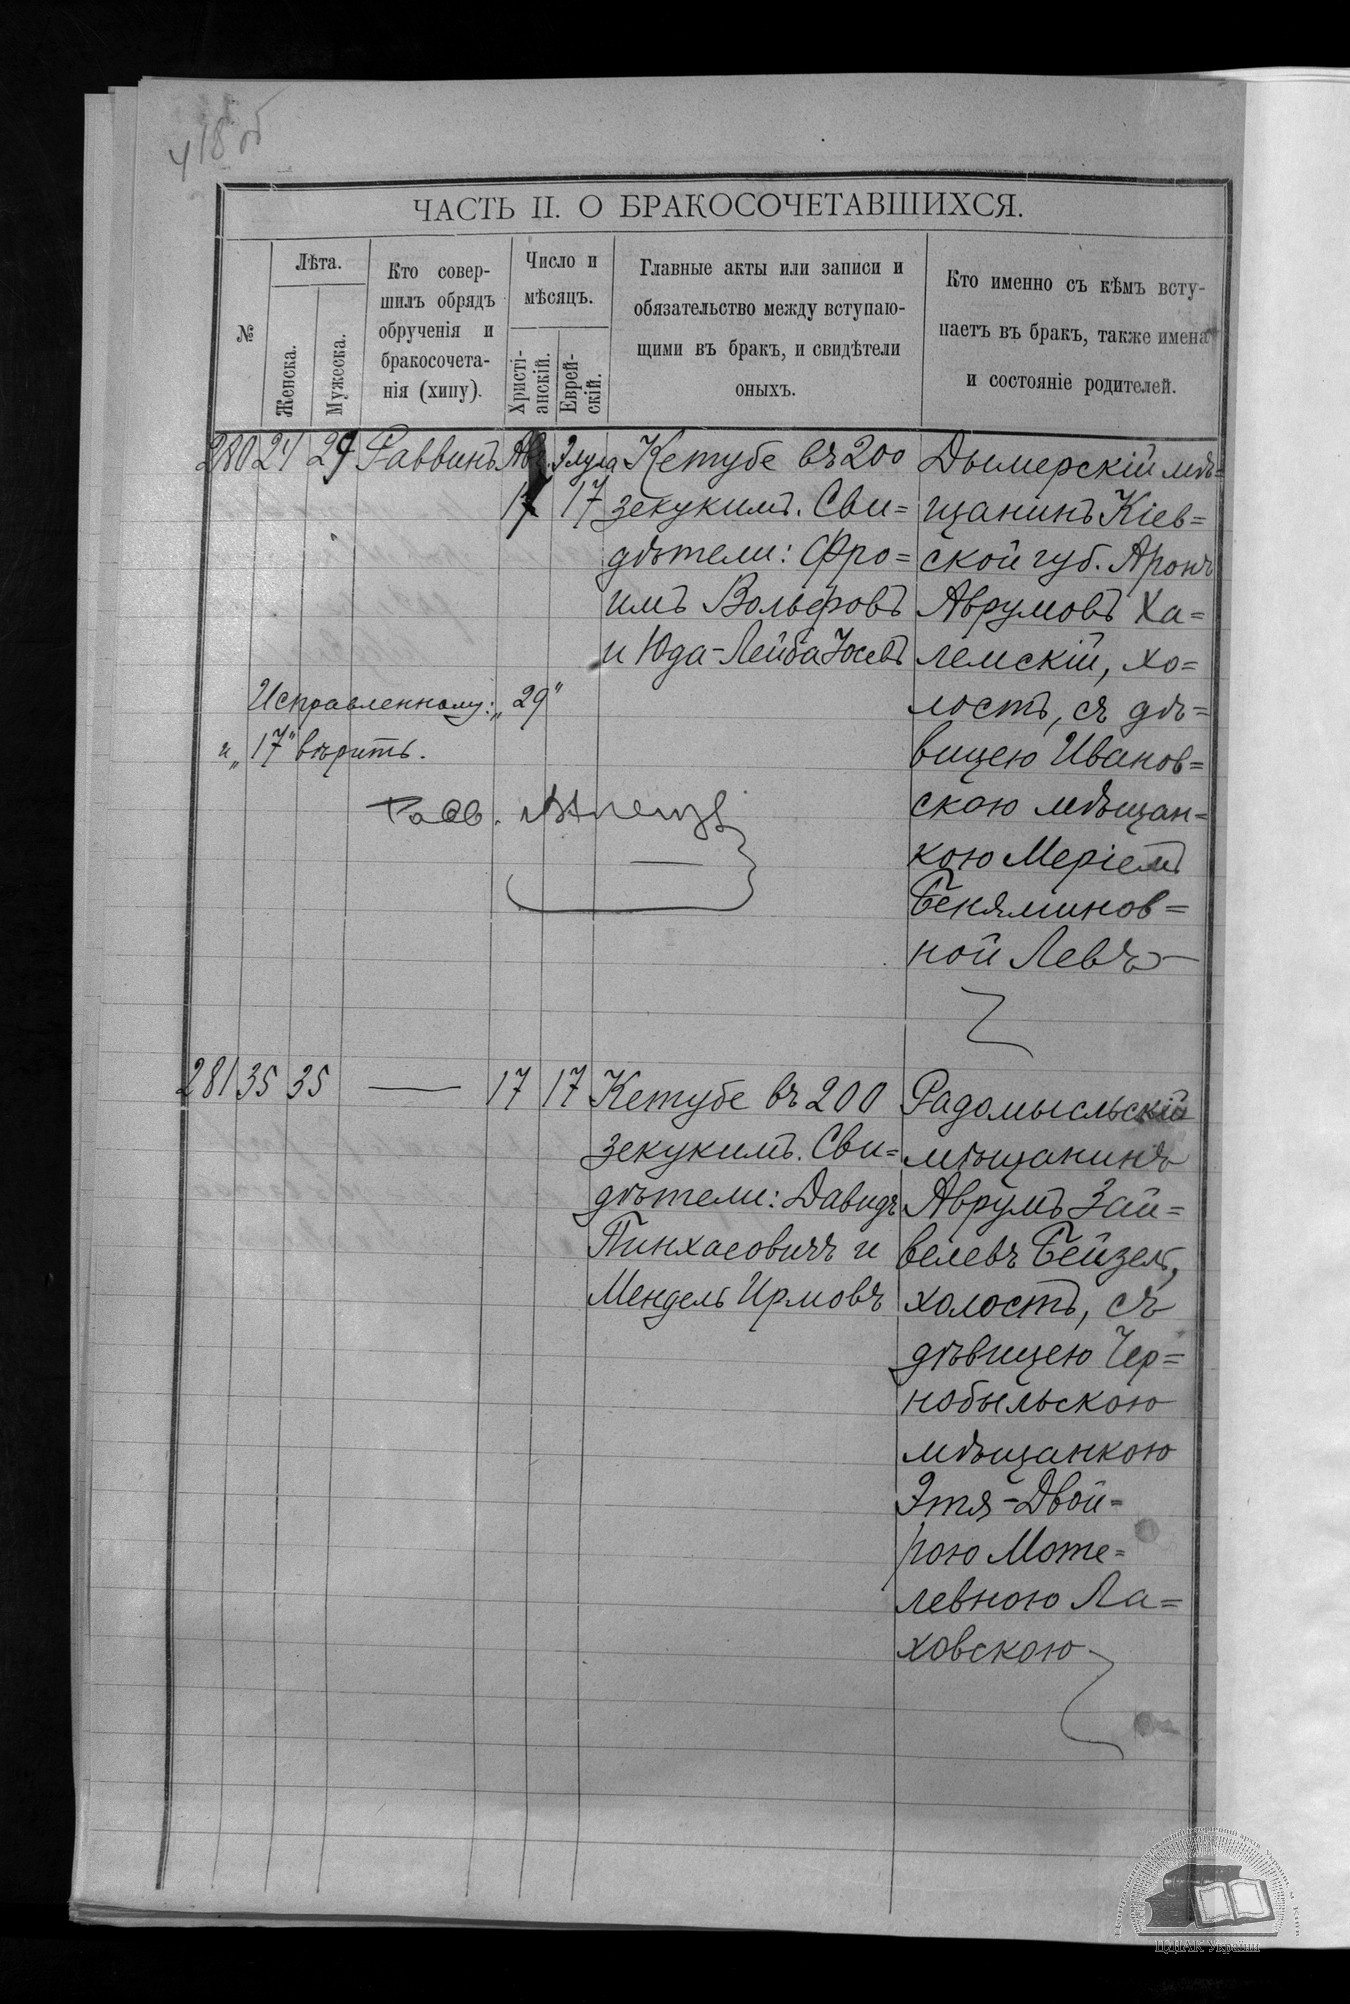 418 об
ЧАСТЬ II. О БРАКОСОЧЕТАВШИХСЯ.
№
Лѣта.
Женска.
Мужеска.
Кто совер-
шилъ обрядъ
обрученія и
бракосочета-
нія (хипу).
Число и
мѣсяцъ.
Христі-
анскій.
Еврей-
скій.
Главные акты или записи и
обязательство между вступаю-
щими въ бракъ, и свидѣтели
оныхъ.
Кто именно съ кѣмъ всту-
паетъ въ бракъ, также имена
и состояніе родителей.
280 24 29 Раввинъ Авг. 17 Элула 17
Кетубе въ 200
зекукимъ. Сви=
дѣтели: Фро=
имъ Вольфовъ
и Юда-Лейба Іосевъ
Дымерскій мѣ=
щанинъ Кіев=
ской губ. Аронъ
Аврумовъ Ха=
лемскій, хо=
лостъ, съ дѣ=
вицею Иванов=
скою мѣщан=
кою Меріемъ
Беняминов=
ной Левъ
Исправленному: „29"
и „17" вѣрить.
Равв.
281 35 35 — 17 17
Кетубе въ 200
зекукимъ. Сви=
дѣтели: Давидъ
Пинхасовичъ и
Мендель Ирмовъ
Радомысльскій
мѣщанинъ
Аврумъ Зай=
велевъ Бейзелъ,
холостъ, съ
дѣвицею Чер=
нобыльскою
мѣщанкою
Этя-Двой=
рою Моте=
левною Ла=
ховскою
ЦДІАК України